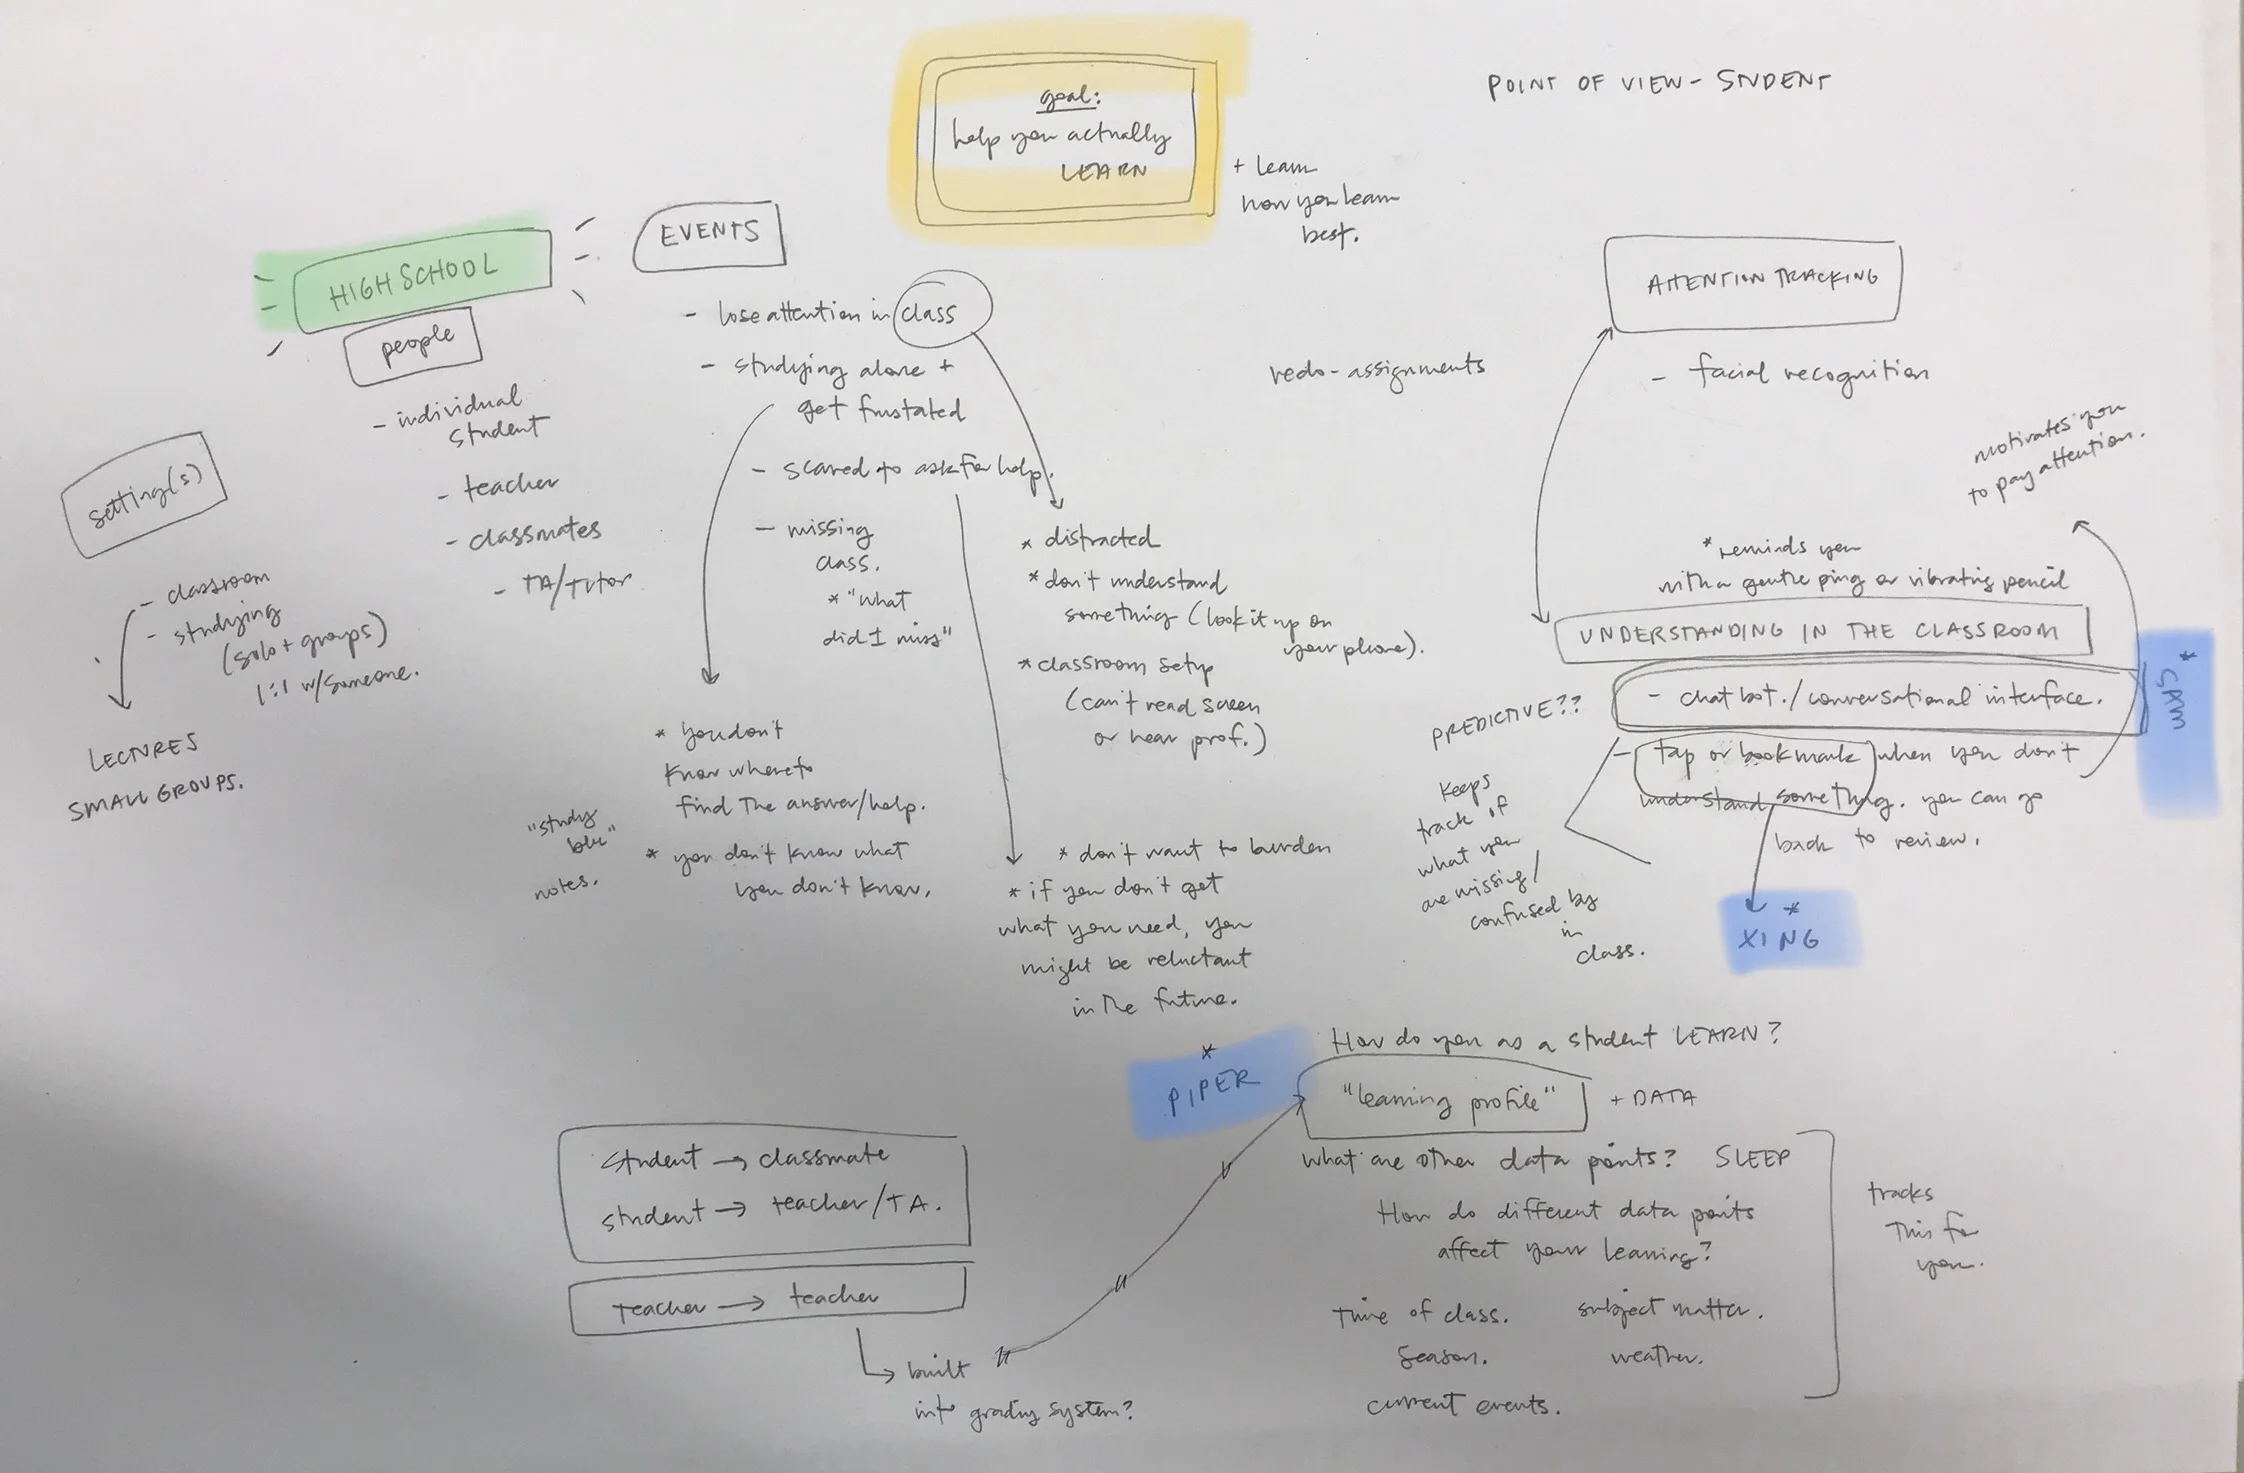 goal:
help you actually
LEARN
+ learn
how you learn
best.
POINT OF VIEW - STUDENT
HIGH SCHOOL
people
- individual
student
- teacher
- classmates
- TA/Tutor
setting(s)
- classroom
- studying
(solo + groups)
1:1 w/someone.
LECTURES
SMALL GROUPS.
EVENTS
- lose attention in class
- studying alone +
get frustated
- scared to ask for help.
- missing
class.
* "what
did I miss"
* distracted
* don't understand
something (look it up on
your phone).
* classroom setup
(can't read screen
or hear prof.)
* you don't
know where to
find the answer/help.
* you don't know what
you don't know.
"study
blue"
notes.
* don't want to burden
* if you don't get
what you need, you
might be reluctant
in the future.
redo-assignments
ATTENTION TRACKING
- facial recognition
motivates you
to pay attention.
* reminds you
with a gentle ping or vibrating pencil
UNDERSTANDING IN THE CLASSROOM
- chat bot./conversational interface.
- tap or bookmark when you don't
understand something. you can go
back to review.
PREDICTIVE??
keeps
track of
what you
are missing/
confused by
in
class.
*
*
XING
*
PIPER
How do you as a student LEARN?
"learning profile" + DATA
what are other data points? SLEEP
How do different data points
affect your learning?
Time of class. subject matter.
Season. weather.
current events.
tracks
this for
you.
student → classmate
student → teacher/TA.
teacher → teacher
built
into grading system?